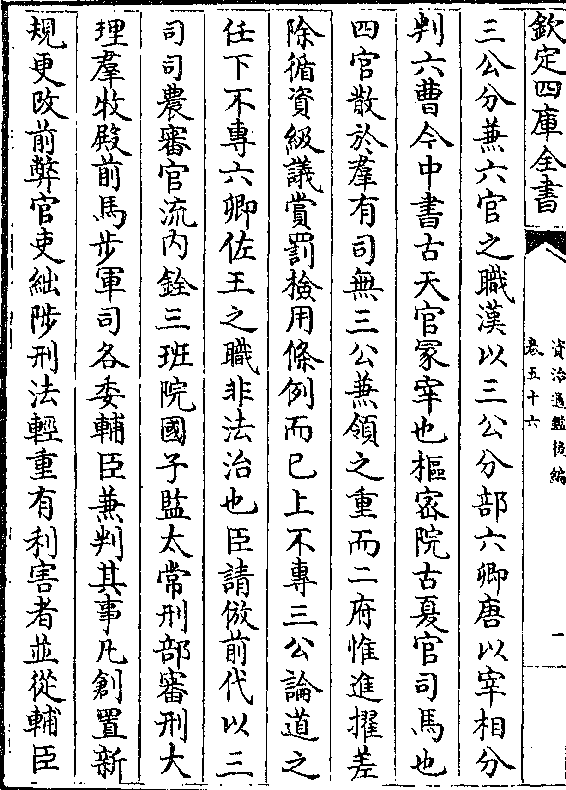 欽定四庫全書
資治通鑑後編
卷五十六
一
三公分兼六官之職漢以三公分部六卿唐以宰相分
判六曹今中書古天官冡宰也樞宻院古夏官司馬也
四官散於羣有司無三公兼領之重而二府惟進擢差
除循資級議賞罰檢用條例而已上不專三公論道之
任下不專六卿佐王之職非法治也臣請倣前代以三
司司農審官流内銓三班院國子監太常刑部審刑大
理羣牧殿前馬步軍司各委輔臣兼判其事凡創置新
規更改前弊官吏絀陟刑法輕重有利害者並從輔臣